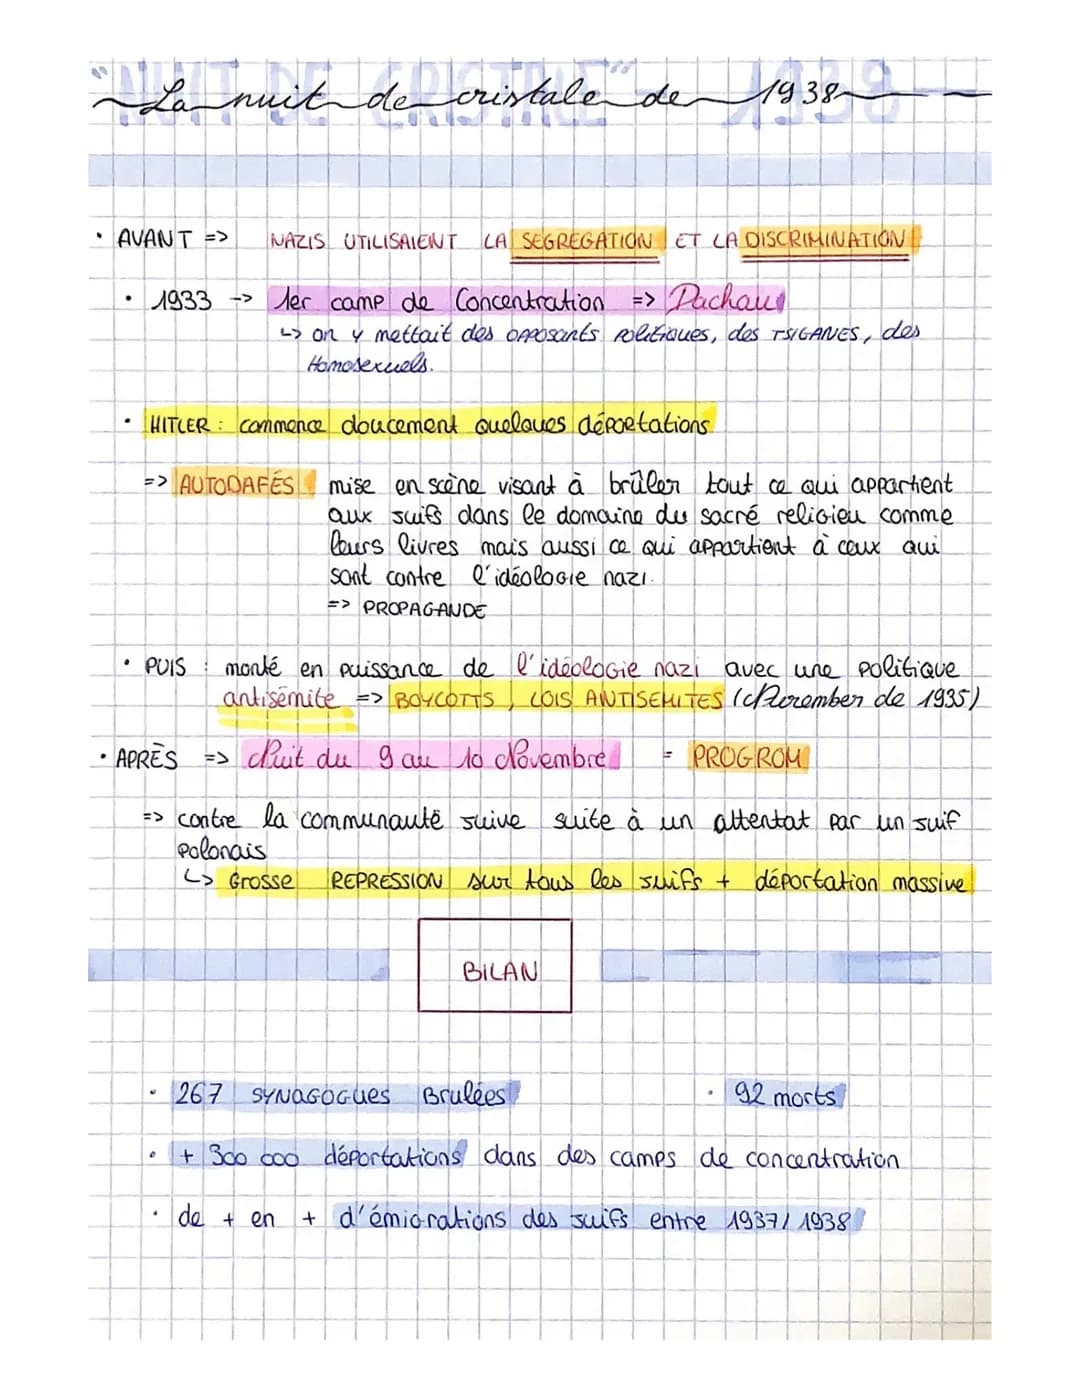 "NUIT DE CRISTALE" 1938
La nuit de cristale de 1938
• AVANT => NAZIS UTILISAIENT LA SEGREGATION ET LA DISCRIMINATION
• 1933 -> 1er camp de Concentration => Dachau
↳ on y mettait des opposants politiques, des TSIGANES, des
Homosexuels.
• HITLER : commence doucement quelques déportations
=> AUTODAFÉS mise en scène visant à brûler tout ce qui appartient
aux juifs dans le domaine du sacré religieu comme
leurs livres mais aussi ce qui appartient à ceux qui
sont contre l'idéologie nazi.
=> PROPAGANDE
• PUIS : monté en puissance de l'idéologie nazi avec une politique
antisémite => BOYCOTTS, LOIS ANTISEMITES (Novembre de 1935)
• APRÈS => Nuit du 9 au 10 Novembre = PROGROM
=> contre la communauté juive suite à un attentat par un juif
polonais
↳ Grosse REPRESSION sur tous les juifs + déportation massive
BILAN
• 267 SYNAGOGUES Brulées • 92 morts
• + 300 000 déportations dans des camps de concentration
• de + en + d'émigrations des juifs entre 1937/1938